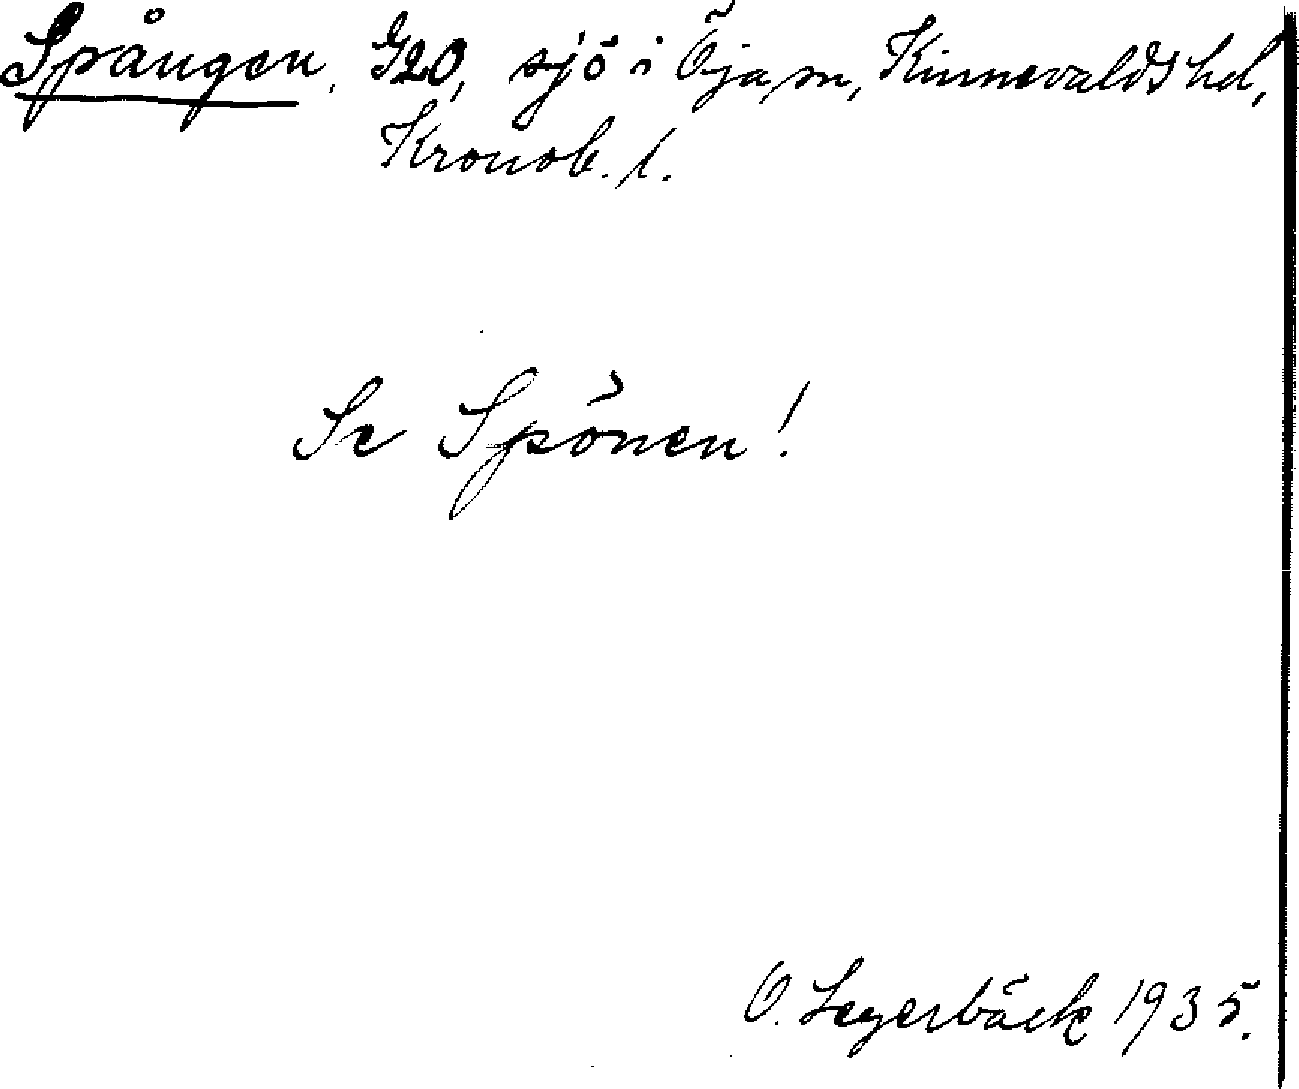 Spången, G20, sjö i Öja sn, Kinnevalds hd,
Kronob. l.
Se Spönen!
O. Legerbäck 1935.